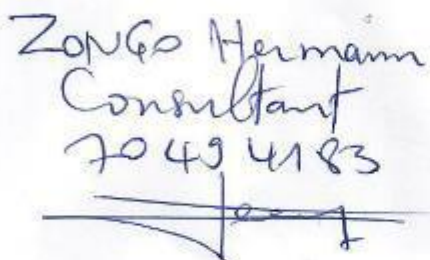 ZONGO Hermann
Consultant
70 49 41 83